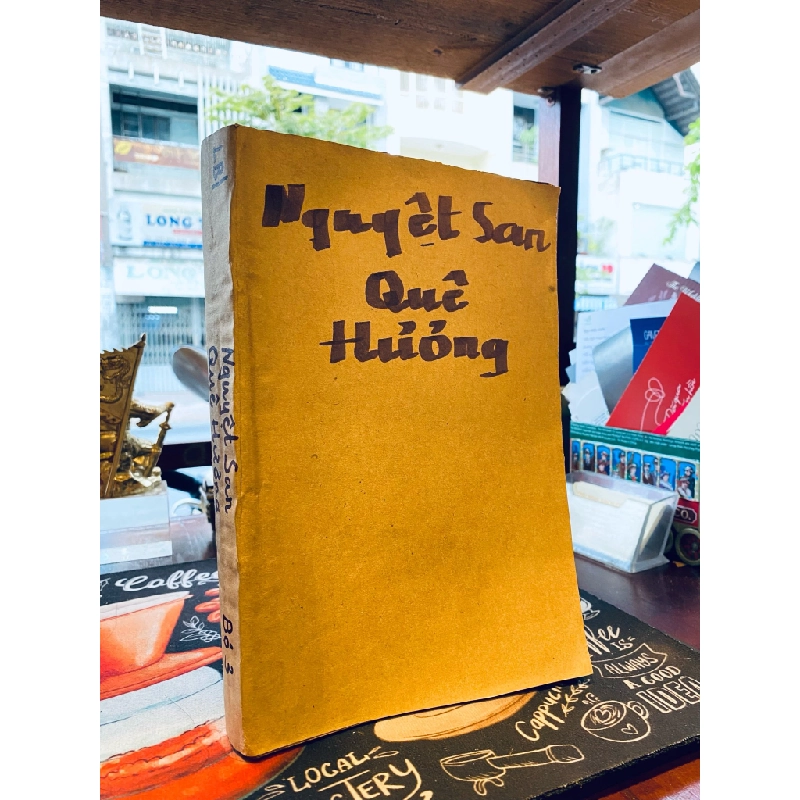 Nguyệt San
Quê
Hương
Nguyệt San
Quê Hương
Bộ 3
LONG
LONG
Coffee
LOCAL
Cappuc
IS
ALWAYS
A GOOD
IDEA